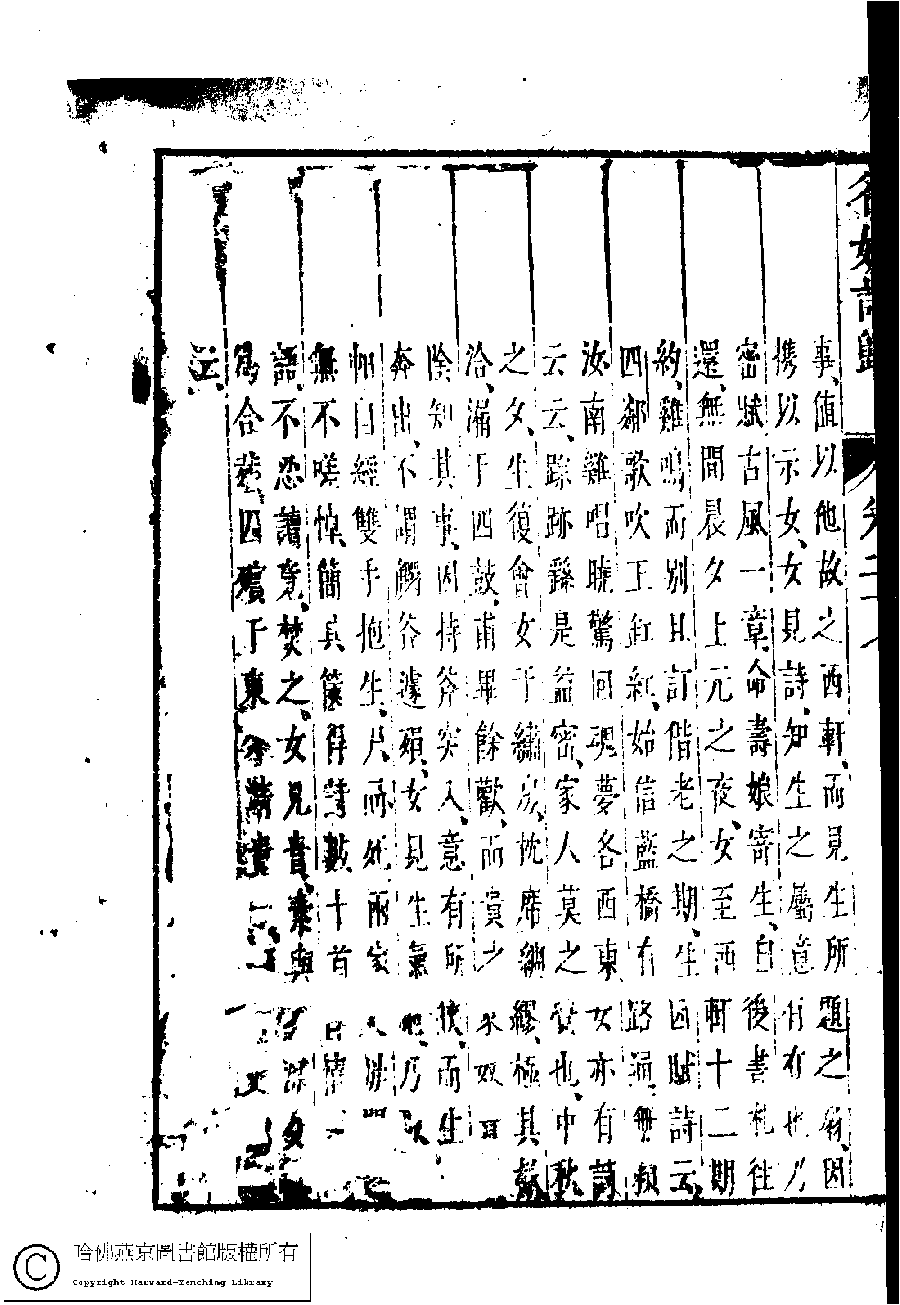 名媛詩歸 卷二十八
事、值以他故之西軒、而見生所題之 因
携以示女、女見詩、知生之屬意有在也、乃
密賦古風一章、命壽娘寄生、自後書札往
還、無間晨夕、上元之夜、女至西軒十二期
約、雞鳴而別、且訂偕老之期、生因賦詩云、
四鄰歌吹玉缸紅、始信藍橋有路通、無賴
汝南雞唱曉驚回魂夢各西東女亦有詩
云云、踪跡繇是益密、家人莫之 也、中秋
之夕、生復會女于繡房、枕席綢繆、極其歡
洽、漏于四鼓、甫畢餘歡、而黃之 奴
陰知其事、因持斧突入、意有所挾、而生
奔出、不謂觸斧遽殞、女見生氣絕、乃以
帕自經、雙手抱生、尸而死、兩家
無不嗟悼、簡其篋得詩數十首
語、不忍讀竟、焚之、女兄賁、素與
為合葬、因殯于東
云、
哈佛燕京圖書館版權所有
Copyright Harvard-Yenching Library